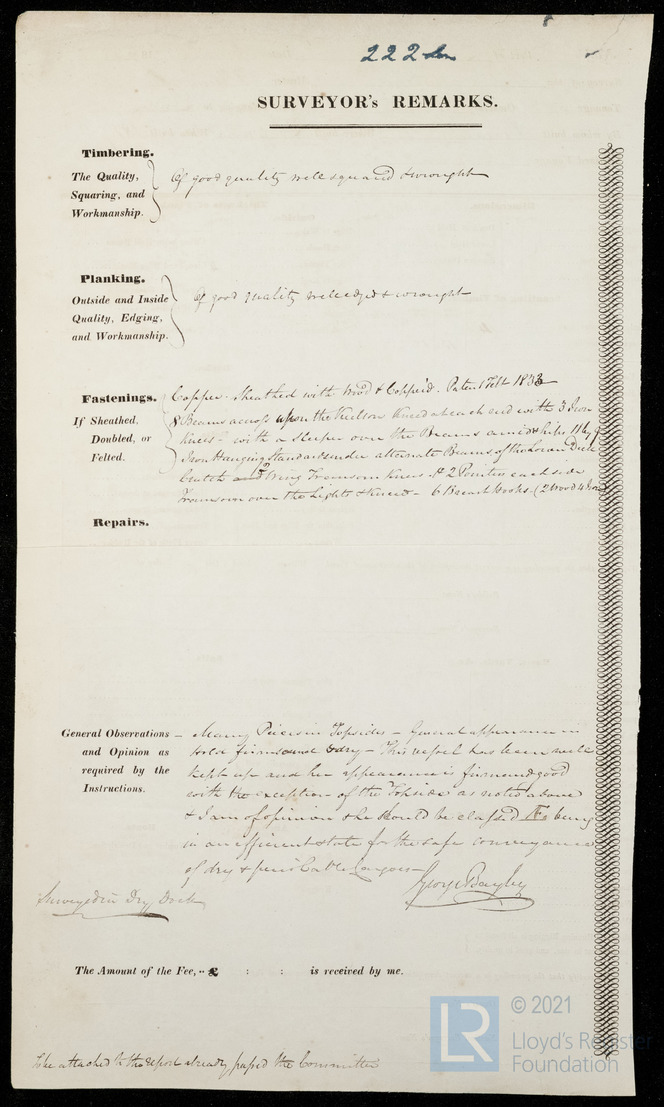 222 Lon
SURVEYOR's REMARKS.
Timbering.
The Quality,
Squaring, and
Workmanship.
Of good quality well squared & wrought
Planking.
Outside and Inside
Quality, Edging,
and Workmanship.
Of good quality well edged & wrought
Fastenings.
If Sheathed,
Doubled, or
Felted.
Copper. Sheathed with Wood & Copper'd. Patent Felt 183
8 Beams across upon the Keelson Kneed at each end with 3 Iron
Knees - with a sleeper over the Beams amidships
Iron Hanging Standards under alternate Beams of the Lower Deck
Crutch Wing Transom Knees - & 2 Pointers each side
Transom over the Lights & Kneed - 6 Breast Hooks - (2 Wood 4 Iron)
Repairs.
General Observations
and Opinion as
required by the
Instructions.
- Many Pieces in Topsides - General appearance in
Hold firm sound & dry - This vessel has been well
kept up and her appearance is firm and good
with the exception of the Topsides as noted above
& I am of opinion she should be classed being
in an efficient state for the safe conveyance
of dry & perishable Cargoes
George Bayley
Surveyed in Dry Dock
The Amount of the Fee, .. £ : : is received by me.
© 2021
LR
Lloyd's Register
Foundation
To be attached to the report already passed the Committee